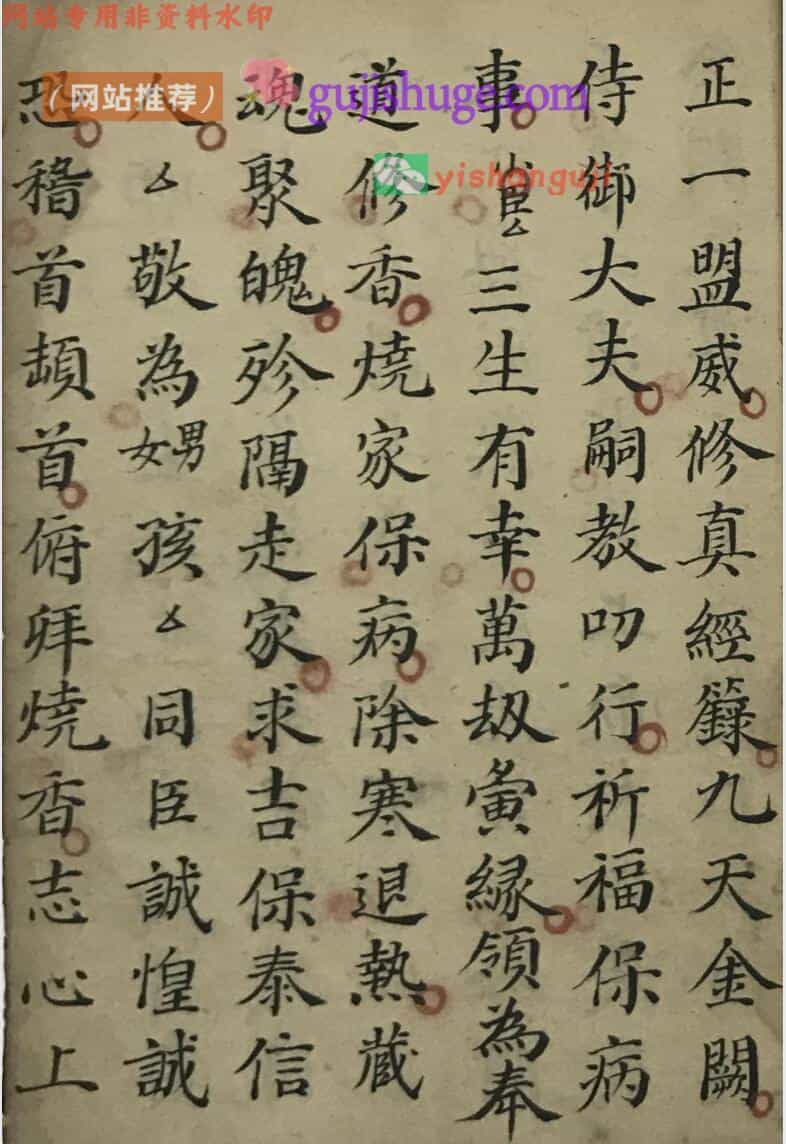 网站专用非资料水印
（网站推荐）
gujishuge.com
yishanguji
正一盟威修真經籙九天金闕
侍御大夫嗣教叨行祈福保病
事小臣厶三生有幸萬劫夤緣領為奉
道修香燒家保病除寒退熱蔵
魂聚魄殄隔走家求吉保泰信
人厶敬為男女孩厶同臣誠惶誠
恐稽首頓首俯拜燒香志心上